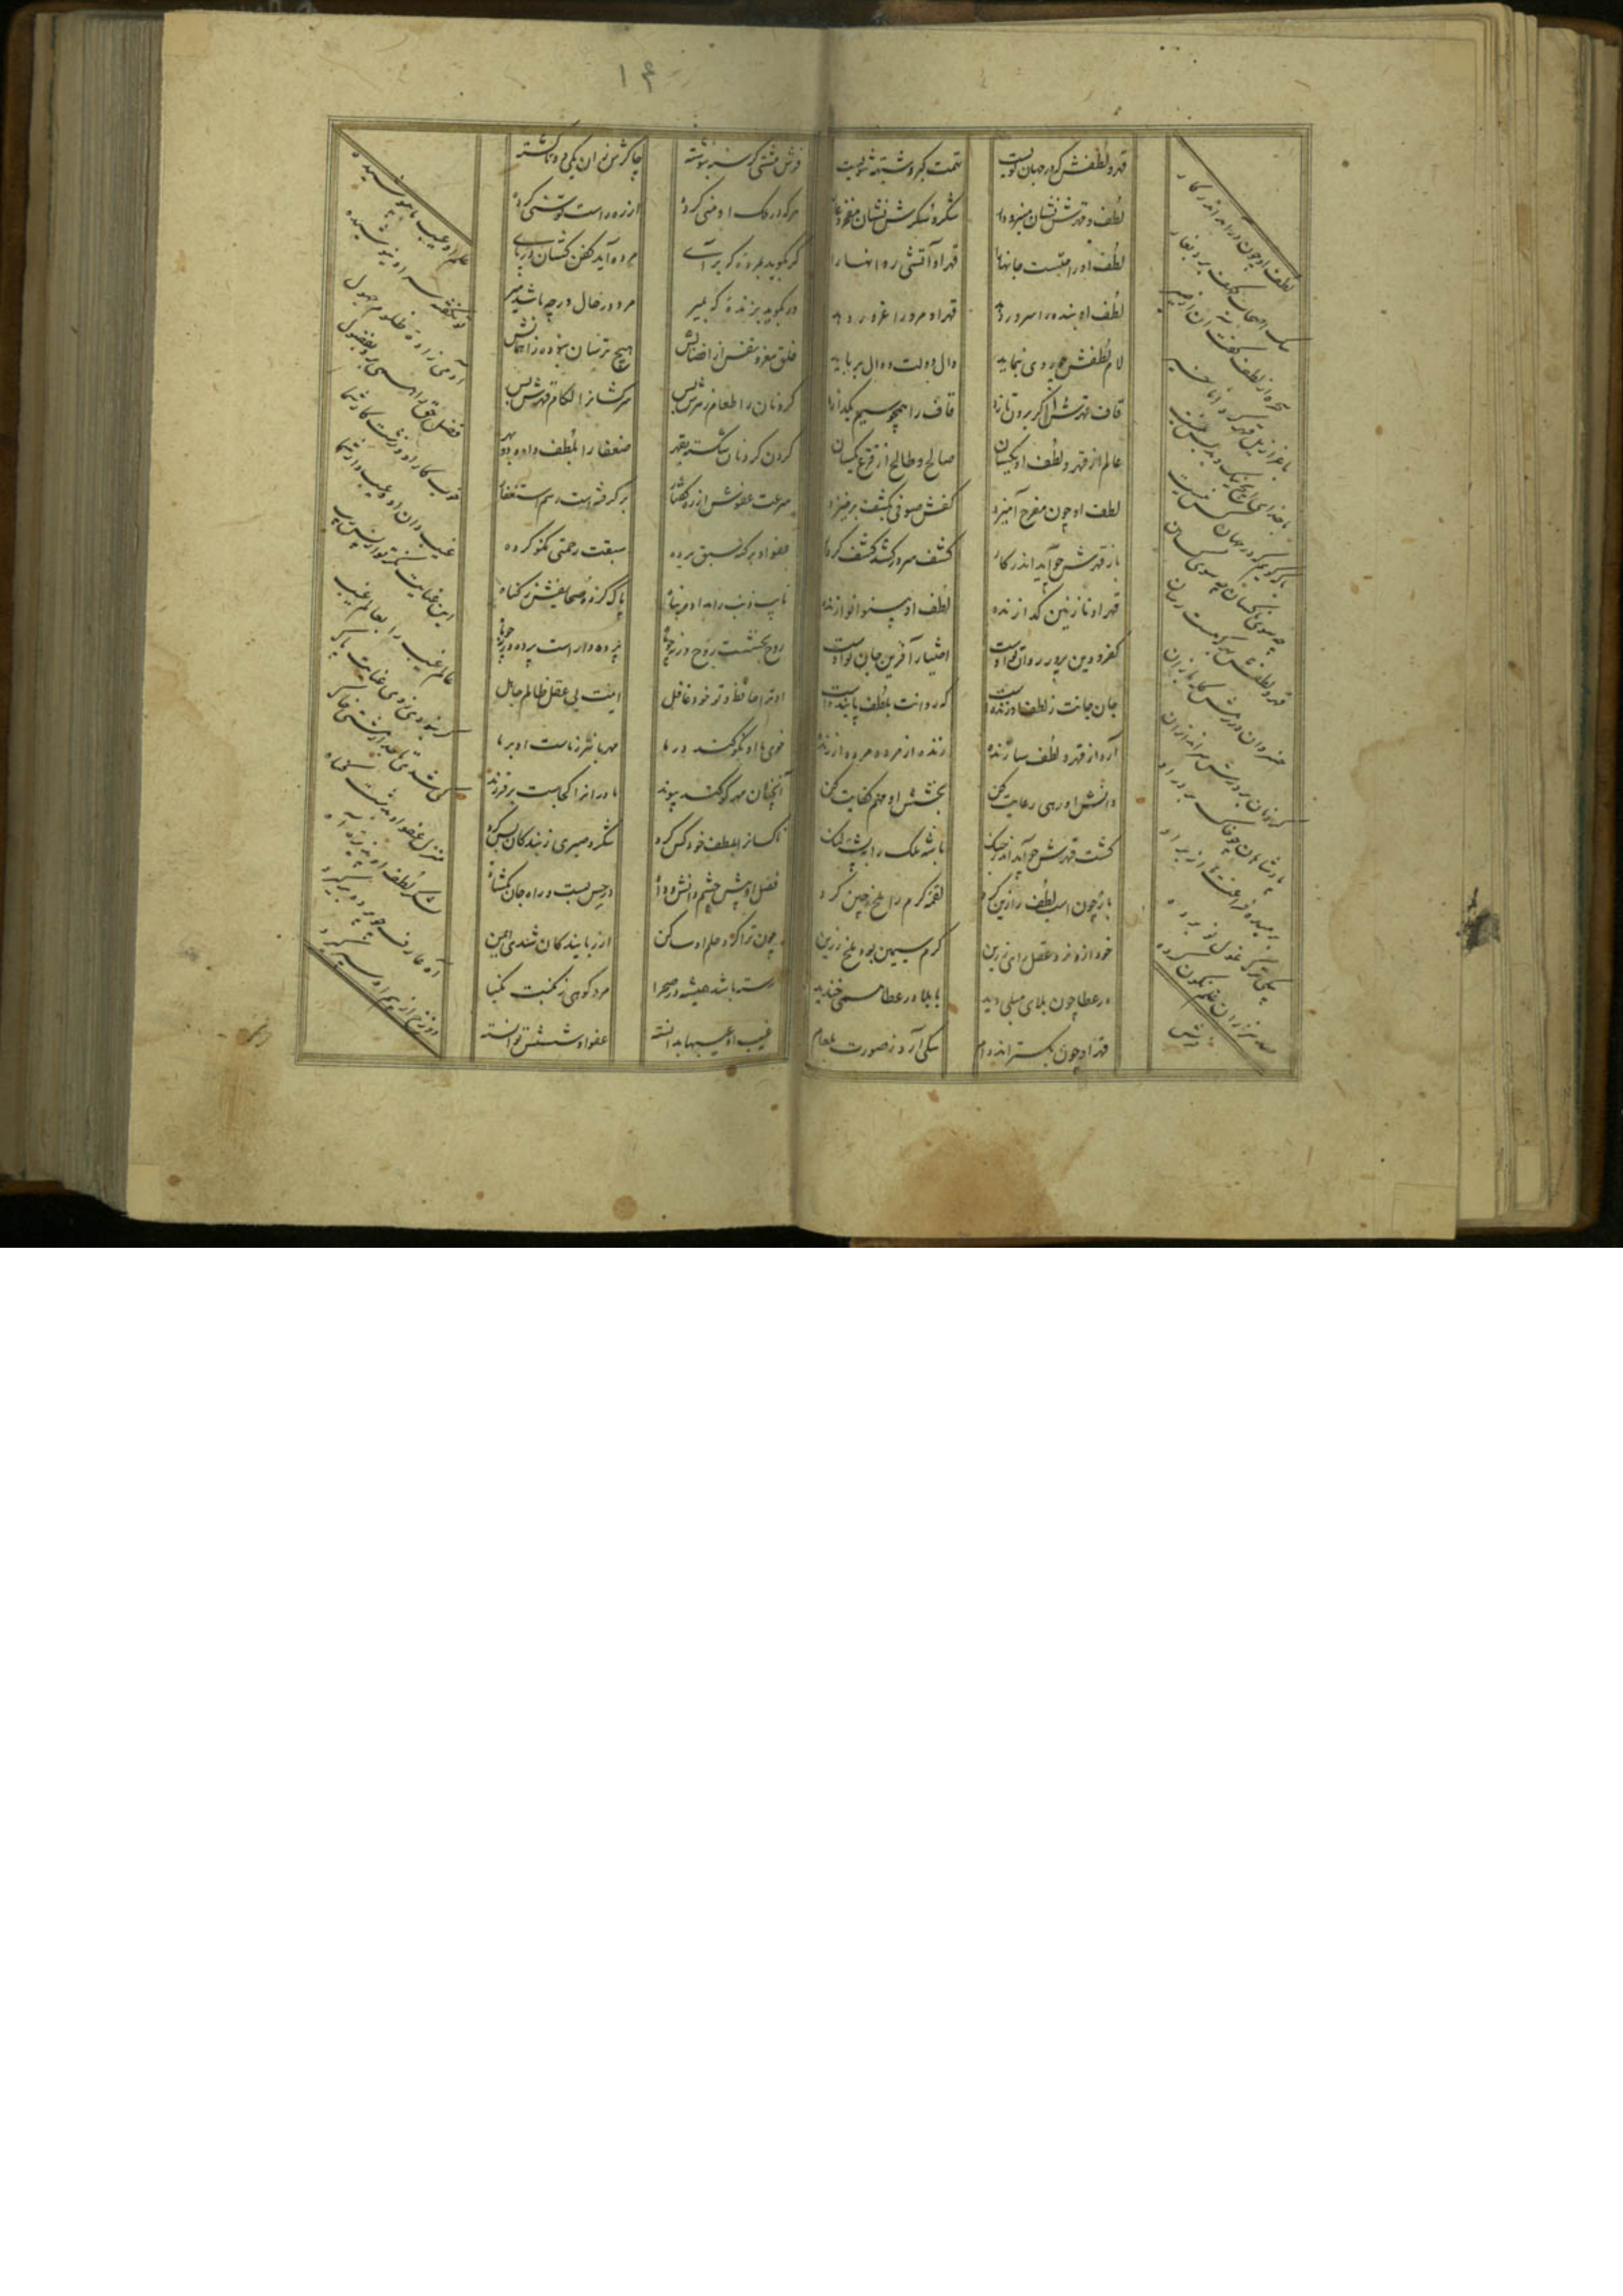 ۱۴
قهر و لطفش که در جهان نویست
تهمت گبر و شبهت ثنویست
لطف و قهرش نشان منبر و دار
شکر و سکرش نشان مفخر و عار
لطف او راحتست جانها را
قهر او آتشی روانها را
لطف او بنده را سرور دهد
قهر او مرد را غرور دهد
لام لطفش چو روی بنماید
دال دولت دوال برباید
قاف قهرش اگر برون تازد
قاف را همچو سیم بگدازد
عالم از قهر و لطف او یکسان
صالح و طالح از فزع یکسان
لطف او چون مفرح آمیزد
کفش صوفی بکشف برخیزد
باز قهرش چو آید اندر کار
کشف سر در کشد کشف کردار
قهر او نازنین گدازنده
لطف او بینوا نوازنده
کفر و دین پرور روان تو اوست
اختیار آفرین جان تو اوست
جان جانت ز لطف او زنده است
که روانت بلطف پاینده است
آرد از قهر و لطف سازنده
زنده از مرده مرده از زنده
دانشش او رهی رعایت کن
بخشش او مهم کفایت کن
گشت قهرش چو آید اندر جنگ
باشه ملک را به پشه لنگ
باز چون اسب لطف را زین کرد
لقمه کرم را ملخ چین کرد
خود از و نزد عقل رای رزین
کرم سیمین بود ملخ زرین
در عطا چون بلای مبلی دید
با بلا در عطا همی خندید
قهر او چون بگستراند دام
سگی آرد ز صورت بلعام
لطف او چون درآمد اندر کار
سگ اصحاب کهف برد بغار
سحره از لطف گفته آن لاضیر
با عزازیل قهر کرد اناخیر
با خدا هیچ نیک و بد بس نیست
با که گویم که در جهان کس نیست
چه سوی ناکسان چه سوی کسان
قهر و لطفش به هر که هست رسان
خسروان در رهش کله بازان
گردنان بر درش سر اندازان
پادشاهان چو خاک بر در او
رمیده فراعنه از بر او
بیکی ترک غول تو بر ده
صد هزاران علم نگون کرده
درش
فرش مشتی گرسنه بنوشته
چاکرش زان یکی دو تا گشته
هر که در ملک او منی کرده
از ره راست توسنی کرده
گر بگوید بمرده که برآی
مرده آید کفن کشان در پای
ور بگوید بزنده که بمیر
مرد در حال ورچه باشد میر
خلق مغرور نفس از افضالش
هیچ ترسان نبوده ز امهالش
گردنان را طعام زهرش بس
سرکشان را لگام قهرش بس
گردن گردنان شکسته بقهر
ضعفا را بلطف داده دو بهر
سرعت عفوش از ره گفتار
برگرفته است رسم استغفار
عفو او بر گنه سبق برده
سبقت رحمتی نکو کرده
تایب ذنب را بداده پناه
پاک کرده صحایفش ز گناه
روح بخشست روح و نزد چو ما
پرده‌دار است پرده در چو ما
او ترا حافظ و تو خود غافل
اینت بی عقل ظالم جاهل
خوی ما او نکو کند در ما
مهربانتر ز ماست او بر ما
آنچنان مهر کو کند پیوند
مادران را کجاست بر فرزند
ناکسان را بلطف خود کس کرد
شکر و صبری ز بندگان بس کرد
فضل او پیش چشم دانش و داد
در حس بست و راه جان گشاد
چون ترا کرد حلم او ساکن
از ربایندگان شدی ایمن
رسته باشد همیشه در صحرا
مرد کوهی ز نکبت نکبا
غیب او عیبها بدانسته
عفو او شستنش توانسته
علم او عیب ما بپوشیده
تو نگفته سر او نیوشیده
آدمی زاده ظلوم جهول
فضل حق را همی برد بفضول
خوب کار او و زشت کار شما
غیب دان او و عیب دار شما
این عنایت نگر تو از پس عیب
عالم غیب را بعالم غیب
گر نبودی ز وی عنایت پاک
کی شدی تاجدار مشتی خاک
منزل عفو او بدشت گناه
لشکر لطف او پذیره آه
آه عارف چو پرده برگیرد
دوزخ از بیم او سپر گیرد